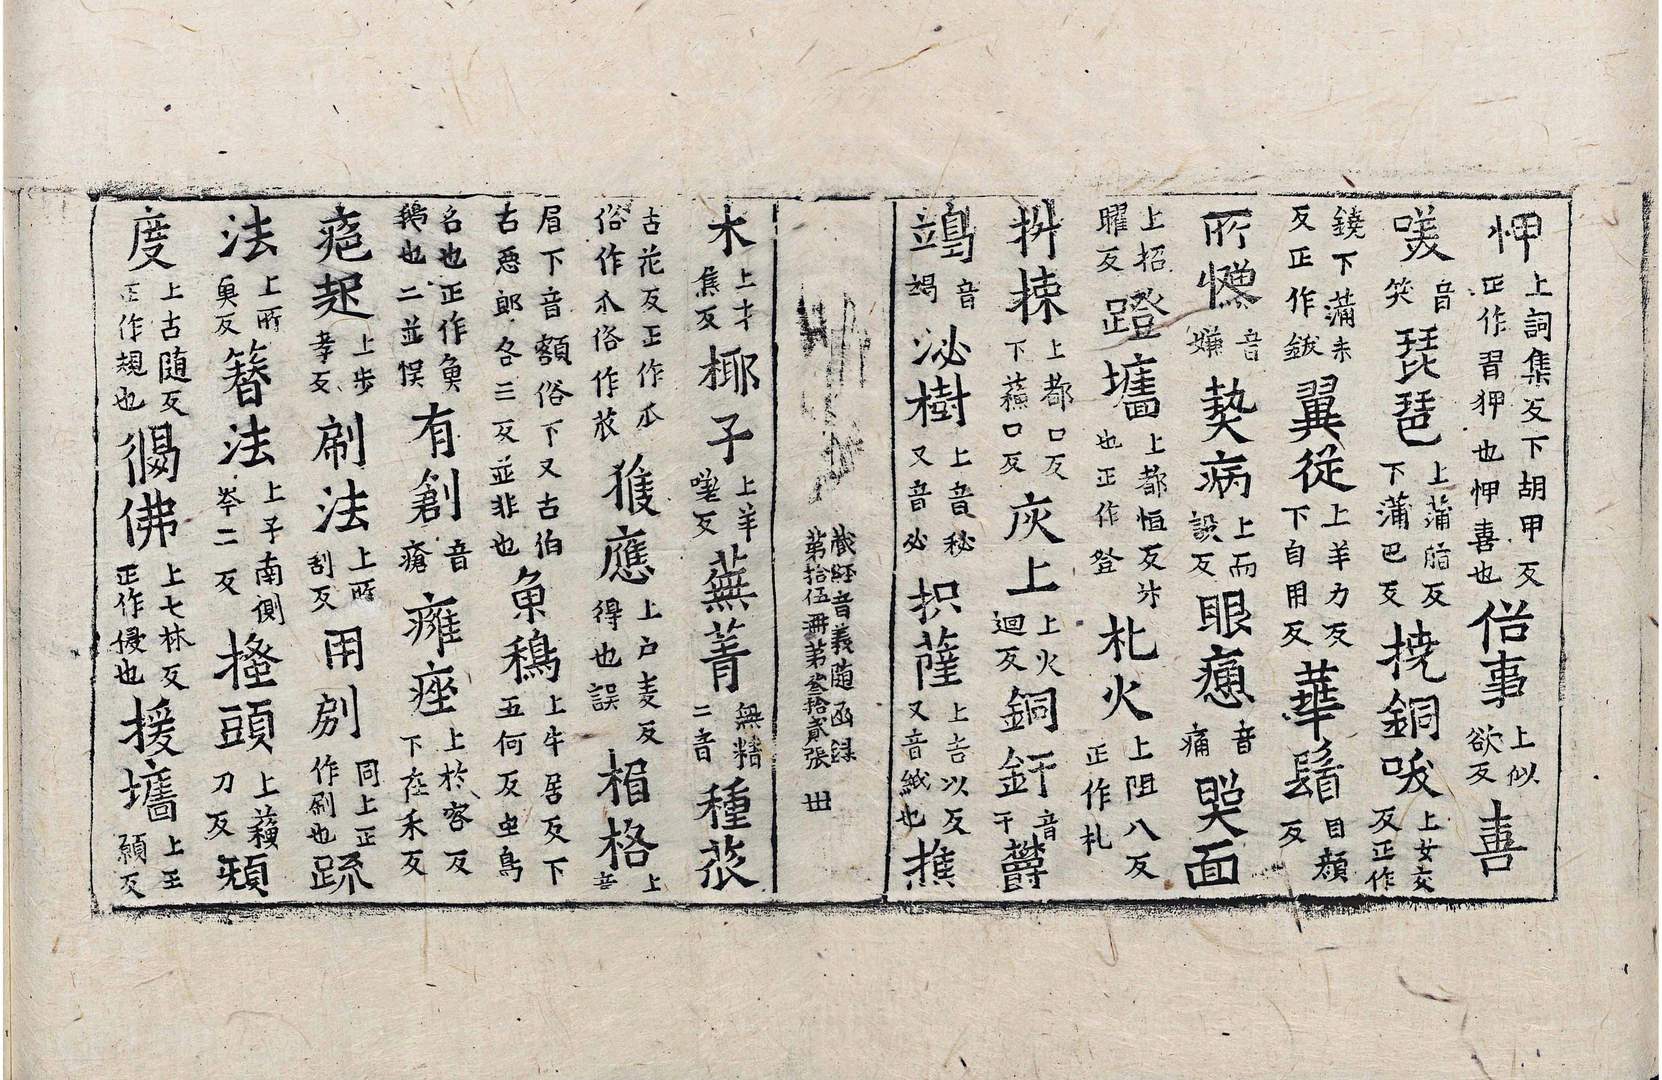 㤉上詞集反下胡甲反正作習狎也㤉喜也俗事上似欲反喜
㗛音笑琵琶上蒲脂反下蒲巴反撓銅𠯗上女交反正作
鐃下蒲末反正作鈸翼從上羊力反下自用反華鬘目顏反
所慊音嫌爇病上而設反眼㾓音痛哭面
上招曜反蹬墻上都恒反升也正作登札火上阻八反正作札
抖揀上都口反下蘓口反灰上上火迴反銅釬音干欝
鴗音竭泌樹上音秘又音必枳薩上吉以反又音紙也樵
藏經音義隨函録第拾伍冊第叄拾貳張 丗
木上才焦反椰子上羊嗟反蕪菁無精二音種苽
古花反正作瓜俗作𤓰俗作苽獲應上戶麦反得也誤相格上音
眉下音額俗下又古伯古惡郎各三反並非也魚鵝上牛居反下五何反虫鳥
名也正作魚鵝也二並悮有創音瘡癰痤上於容反下在禾反
疱起上步孝反刷法上所刮反用刷同上正作刷也疏
法上所臾反簪法上子南側岑二反搔頭上蘓刀反頬
度上古随反正作規也㑥佛上七林反正作侵也援墻上王願反